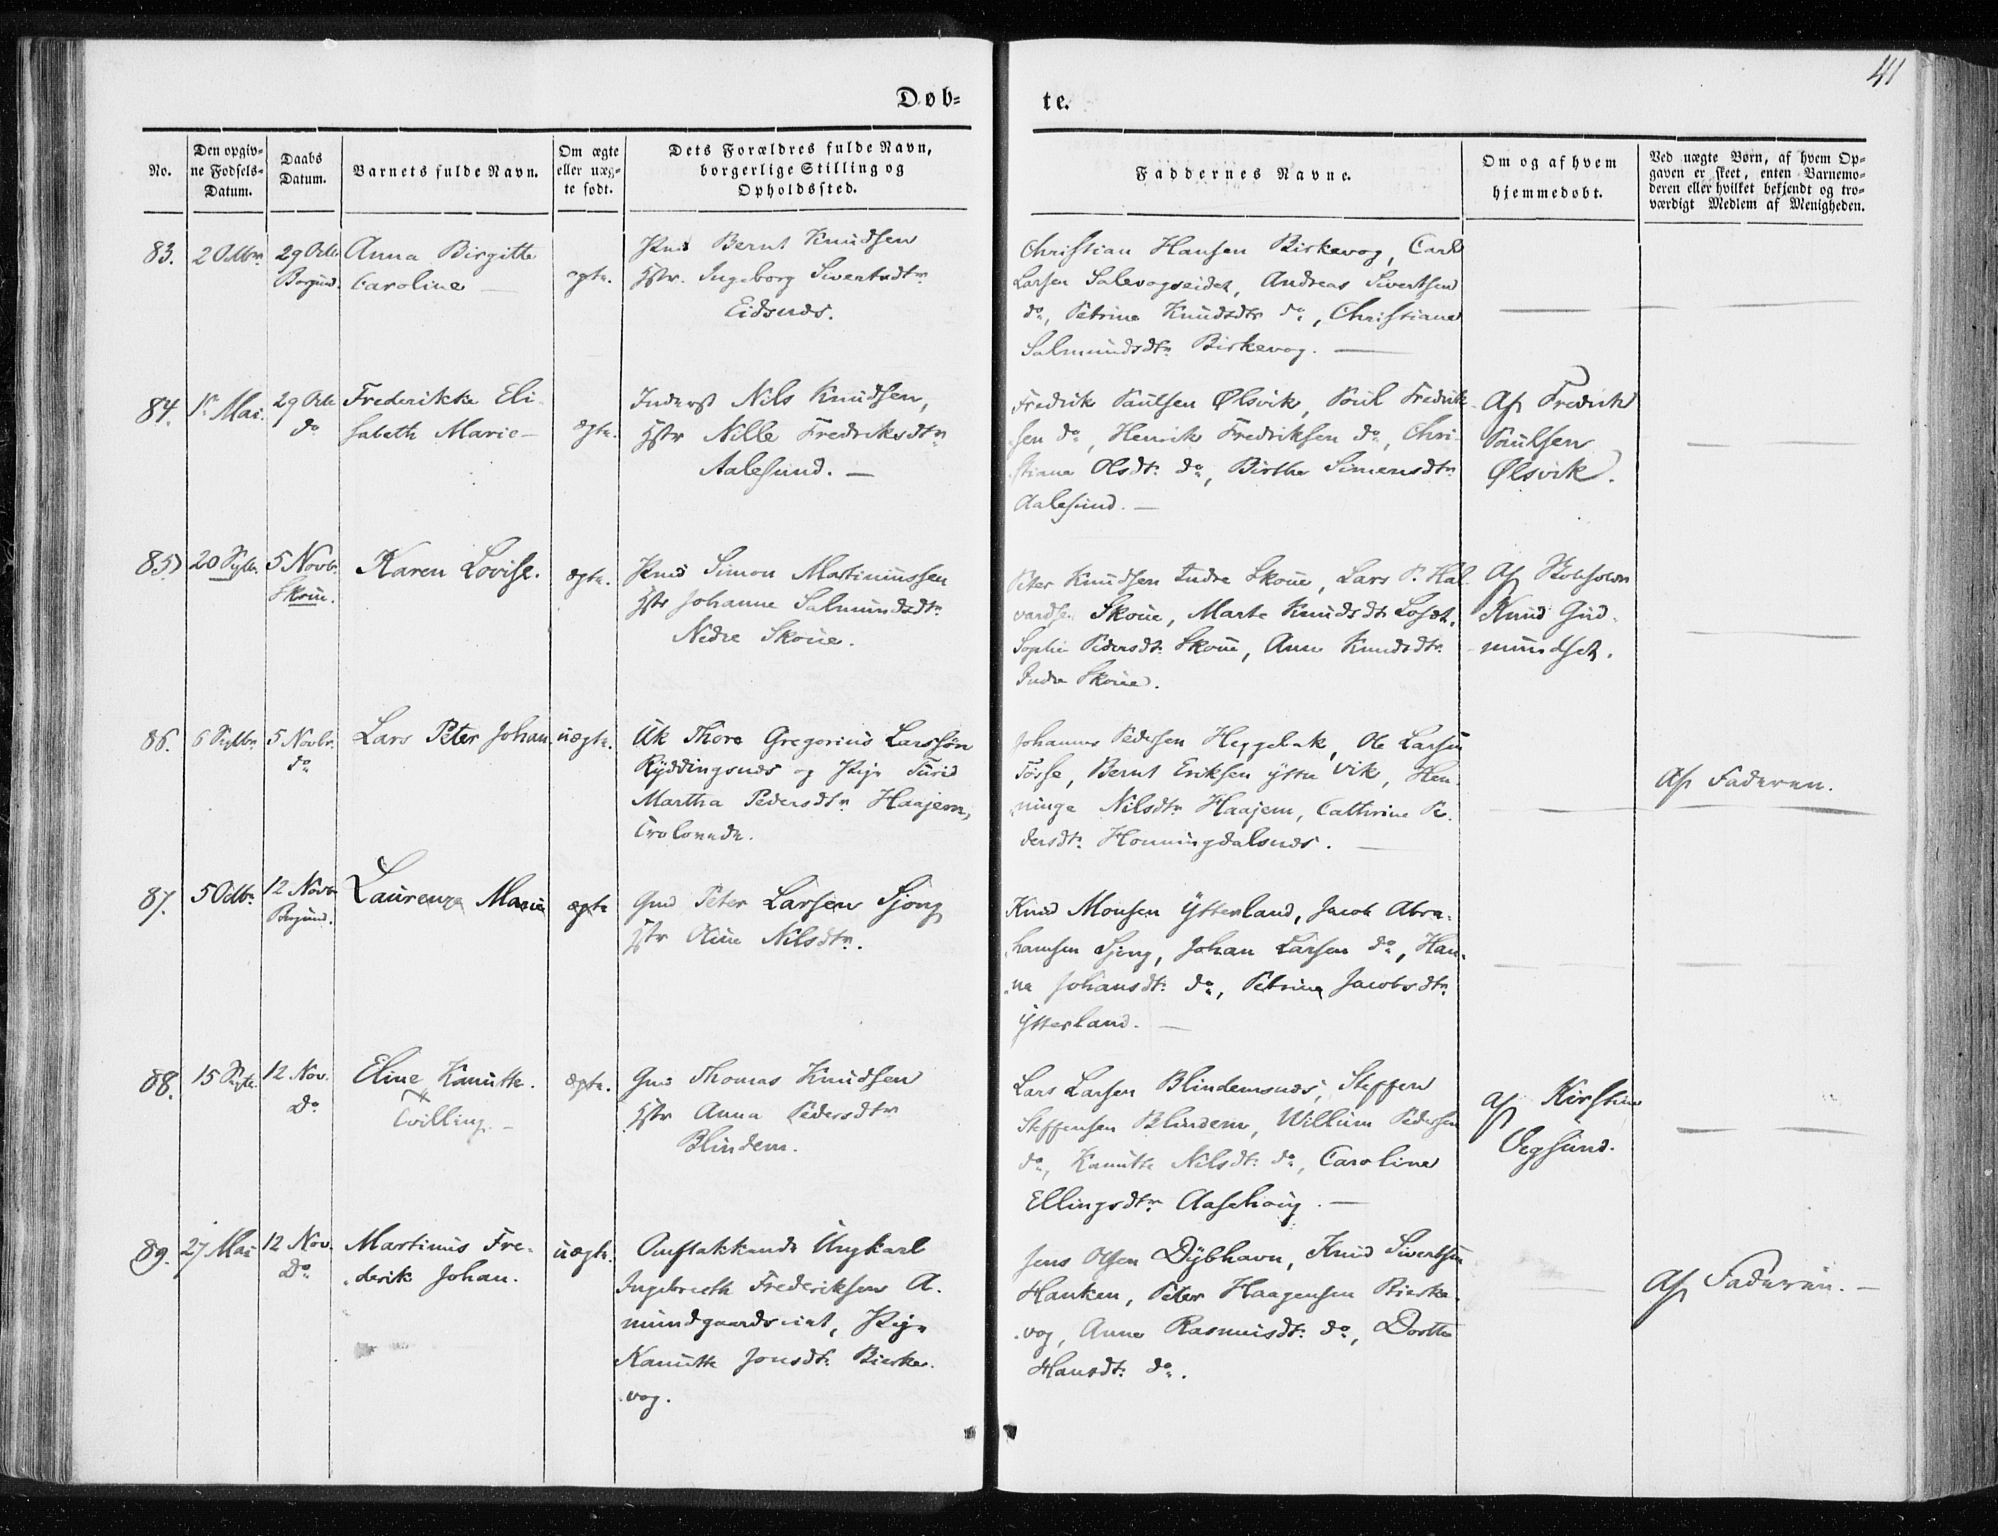 41
Døb=
te.
No.
Den opgiv=
ne Fødsels=
Datum.
Daabs
Datum.
Barnets fulde Navn.
Om ægte
eller uæg=
te født.
Dets Forældres fulde Navn,
borgerlige Stilling og
Opholdssted.
Faddernes Navne.
Om og af hvem
hjemmedøbt.
Ved uægte Børn, af hvem Op=
gaven er skeet, enten Barnemo=
deren eller hvilket bekjendt og tro=
værdigt Medlem af Menigheden.
83.
2 Octbr.
29 Octr.
Borgund.
Anna Birgitte
Caroline —
ægte.
Bernt Knudsen
Hstr. Ingeborg Sivertsdtr.
Eidsnæs.
Christian Hansen Birkevog, Carl
Larsen Salevogseidet, Andreas Sivertsen
do, Petrine Knudsdtr do, Christiane
Salmundsdtr Birkevog. —
84.
1ste Mai.
29 Octr
do
Frederikke Eli
sabeth Marie —
ægte.
Inderst Nils Knudsen,
Hstr Nille Fredriksdtr
Aalesund. —
Fredrik Paulsen Ølsvik, Poul Fredrik
sen do, Henrik Fredriksen do, Chri
stiane Olsdtr do, Birthe Simensdtr
Aalesund. —
Af Fredrik
Paulsen
Ølsvik.
85)
20 Septbr.
5 Novbr.
Skoue.
Karen Lovise.
ægte.
Simon Martinussen
Hstr Johanne Salmundsdtr
Nedre Skoue.
Peter Knudsen Indre Skoue, Lars P. Hal
vardsen Skoue, Marte Knudsdtr
Sophie Pedersdtr Skoue, Anne Knudsdtr
Indre Skoue.
Af Skoleholder
Knud Gud
mundset.
86.
6 Septbr.
5 Novbr.
do
Lars Peter Johan
uægte.
Uk Thore Gregorius Larssøn
Ryddingsnæs og Pige Turid
Martha Pedersdtr Haajem,
Trolovede.
Johannes Pedersen Heggebak, Ole Larsen
Tosse, Bernt Eriksen ytre Vik, Hen
ninge Nilsdtr Haajem, Cathrine Pe
dersdtr Honningdalsnæs. —
Af Faderen.
87.
5 Octbr.
12 Novbr
Borgund.
Laurenze Marie
ægte
Gmd Peter Larsen Sjong
Hstr Oline Nilsdtr.
Knud Monsen Ytterland, Jacob Abra
hamsen Sjong, Johan Larsen do, Han
ne Johansdtr do, Petrine Jacobsdtr
Ytterland. —
88.
15 Septbr.
12 Nov.
Do
Eline Kanutte.
Tvilling. —
ægte.
Gmd Thomas Knudsen
Hstr Anna Pedersdtr
Blindem.
Lars Larsen Blindemsnæs, Steffen
Steffensen Blindem, Willum Pedersen
do, Kanutte Nilsdtr do, Caroline
Ellingsdtr Aasehoug. —
Af Kirstine
Vegsund.
89.
27 Mai
12 Nov.
Do
Martinus Fre
derik Johan.
uægte.
Omflakkende Ungkarl
Ingebreth Frederiksen A
mundgaardseiet, Pige
Kanutte Jonsdtr Bierke
vog.
Jens Olsen Dybhavn, Knud Sivertsen
Hanken, Peter Haagensen Bierke
vog, Anne Rasmusdtr do, Dorthe
Hansdtr do.
Af Faderen. —